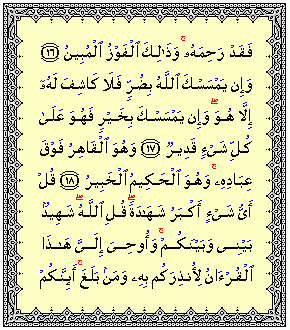 فَقَدْ رَحِمَهُۥ ۚ وَذَٰلِكَ ٱلْفَوْزُ ٱلْمُبِينُ ﴿١٦﴾
وَإِن يَمْسَسْكَ ٱللَّهُ بِضُرٍّۢ فَلَا كَاشِفَ لَهُۥٓ
إِلَّا هُوَ ۖ وَإِن يَمْسَسْكَ بِخَيْرٍۢ فَهُوَ عَلَىٰ
كُلِّ شَىْءٍۢ قَدِيرٌۭ ﴿١٧﴾ وَهُوَ ٱلْقَاهِرُ فَوْقَ
عِبَادِهِۦ ۚ وَهُوَ ٱلْحَكِيمُ ٱلْخَبِيرُ ﴿١٨﴾ قُلْ
أَىُّ شَىْءٍ أَكْبَرُ شَهَٰدَةًۭ ۖ قُلِ ٱللَّهُ ۖ شَهِيدٌۢ
بَيْنِى وَبَيْنَكُمْ ۚ وَأُوحِىَ إِلَىَّ هَٰذَا
ٱلْقُرْءَانُ لِأُنذِرَكُم بِهِۦ وَمَنۢ بَلَغَ ۚ أَئِنَّكُمْ